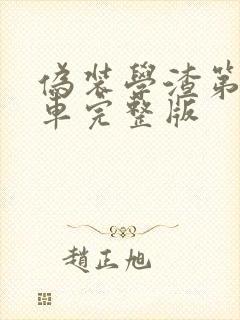 偽裝學渣第
車完整版
趙正旭